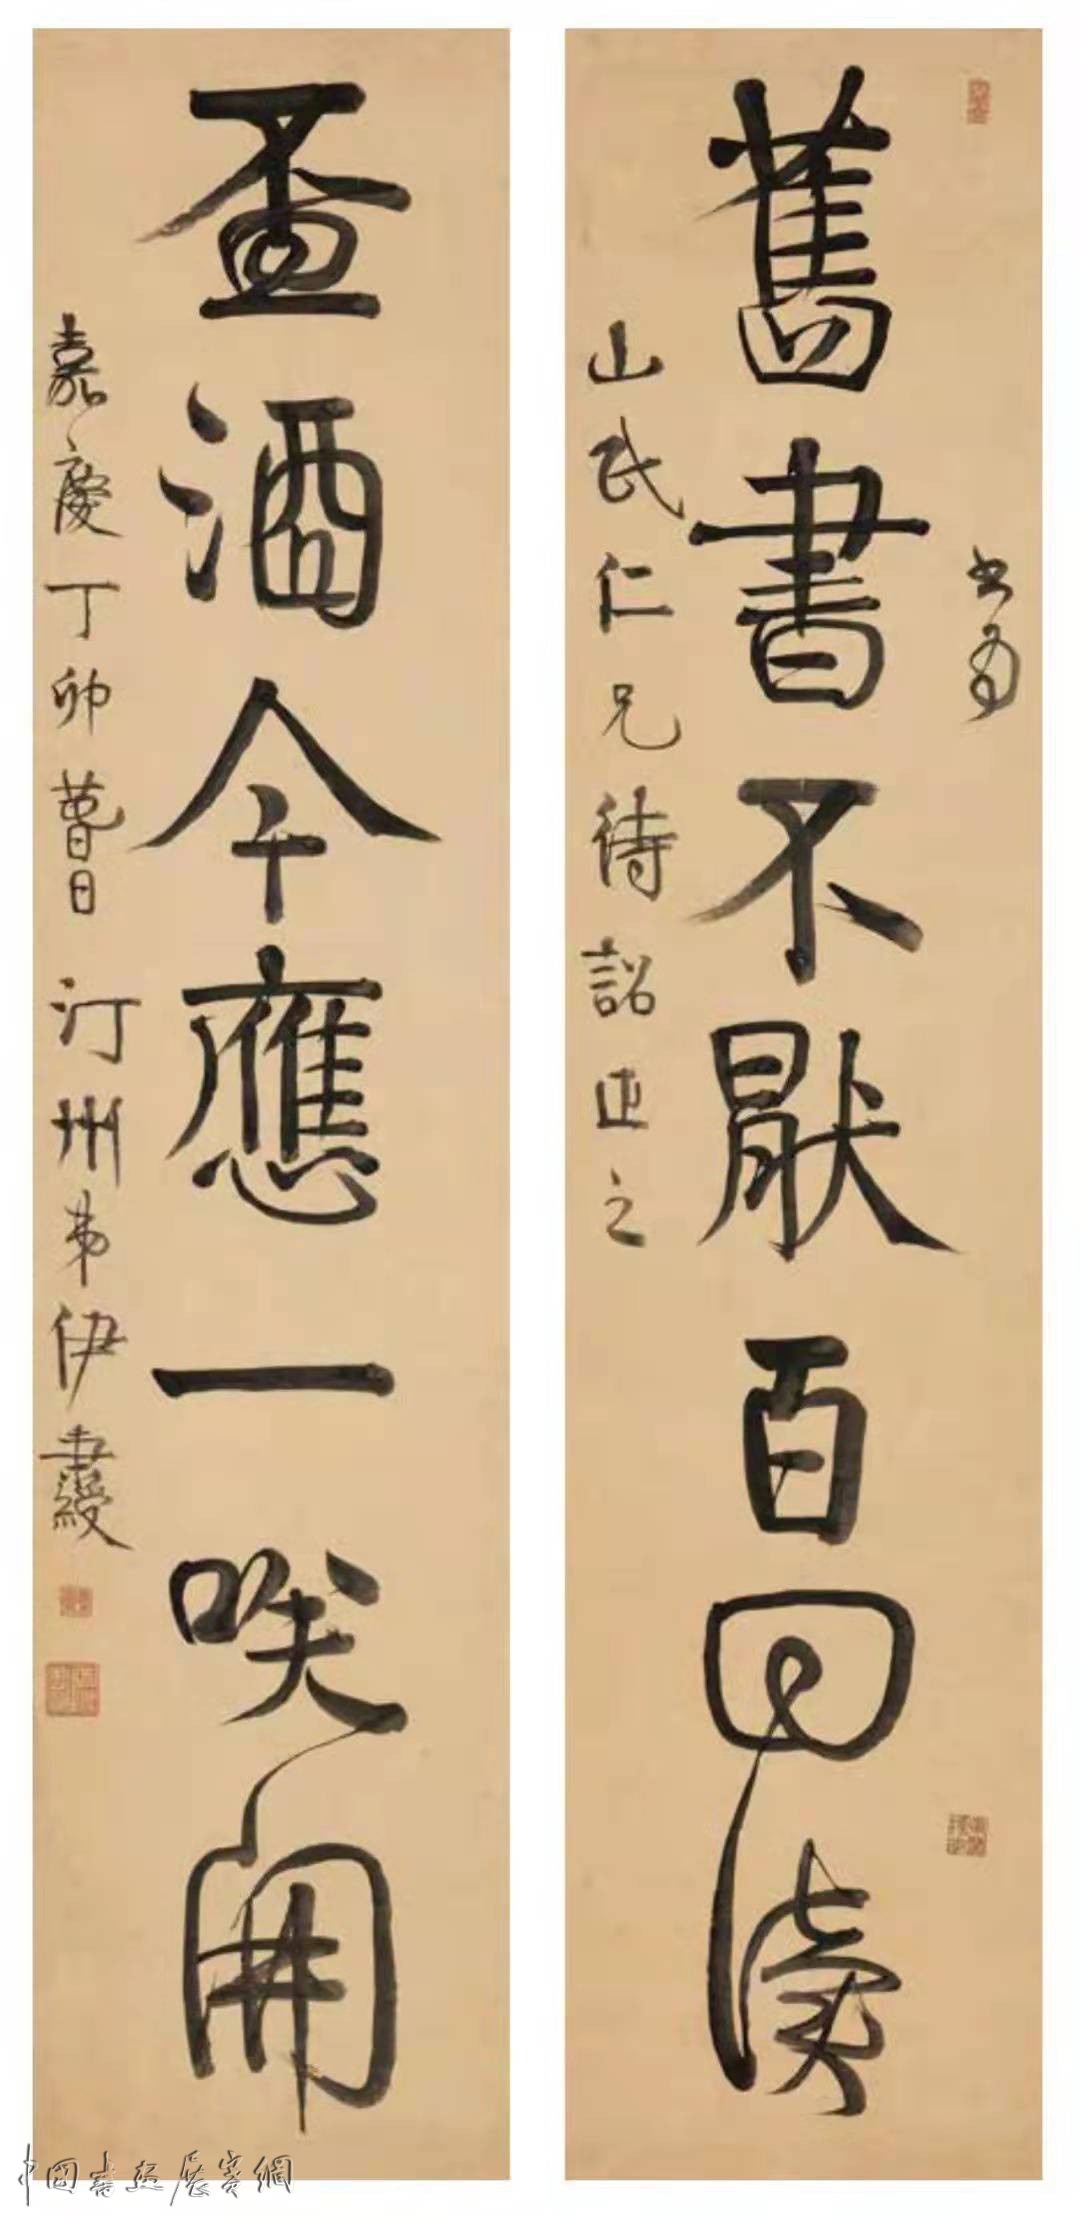 書為
舊書不猒百回讀
山民仁兄待詔正之
盃酒今應一咲開
嘉慶丁卯萅日 汀州弟伊秉綬
中國書画展賽網